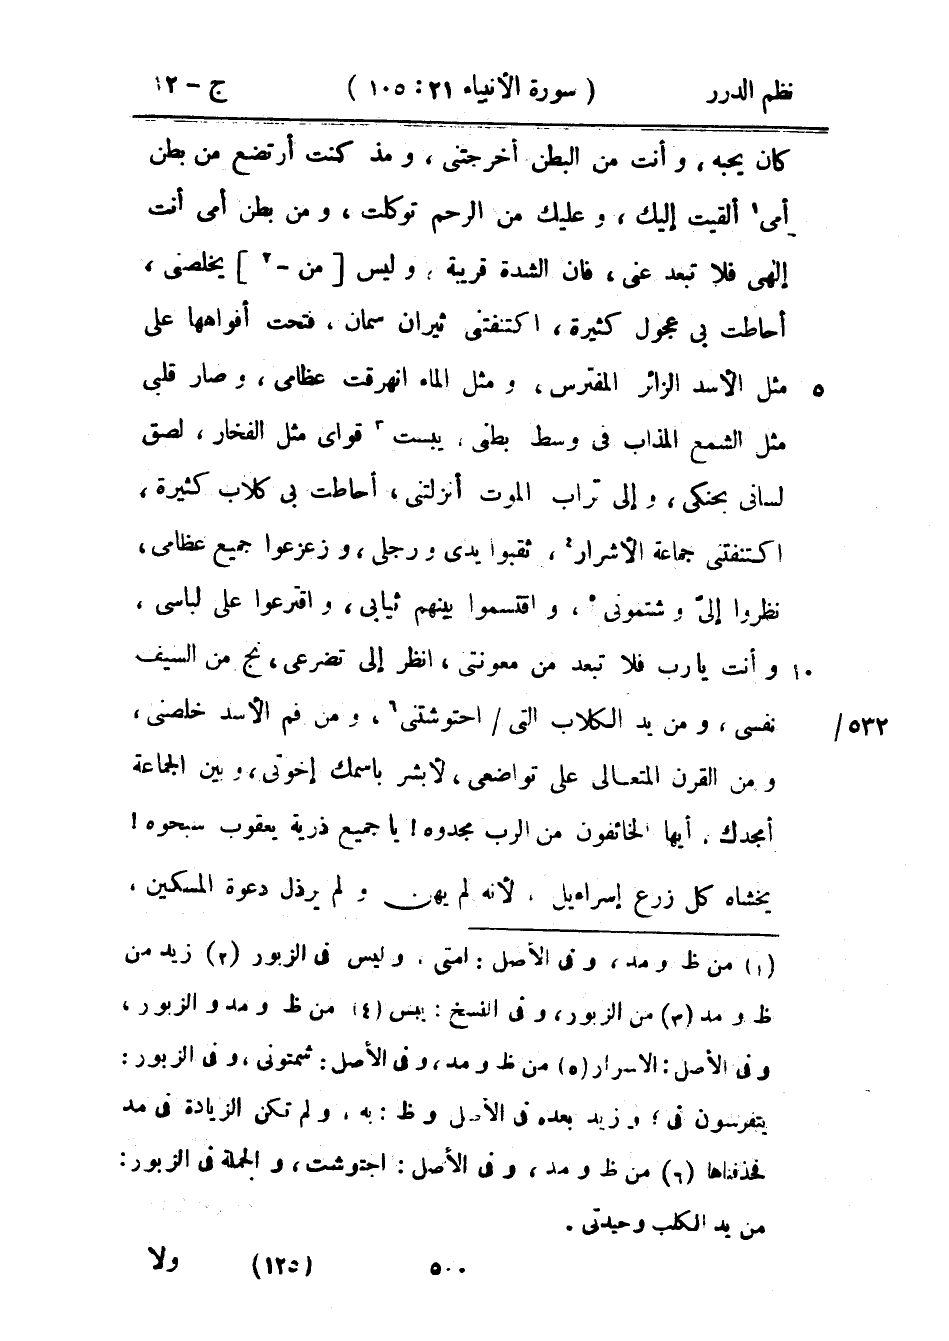 نظم الدرر ( سورة الأنبياء ٢١ : ١٠٥ ) ج - ١٢
كان يحبه ، و أنت من البطن أخرجتنى ، و مذ كنت أرتضع من بطن
أمى١ ألقيت إليك ، و عليك من الرحم توكلت ، و من بطن أمى أنت
إلهى فلا تبعد عنى ، فان الشدة قريبة ، و ليس [ من -٢ ] يخلصنى ،
أحاطت بى عجول كثيرة ، اكتنفتنى ثيران سمان ، فتحت أفواهها على
٥ مثل الأسد الزائر المفترس ، و مثل الماء انهرقت عظامى ، و صار قلبى
مثل الشمع المذاب فى وسط بطنى ، يبست٣ قواى مثل الفخار ، لصق
لسانى بحنكى ، و إلى تراب الموت أنزلتنى ، أحاطت بى كلاب كثيرة ،
اكتنفتنى جماعة الأشرار٤ ، ثقبوا يدى و رجلى ، و زعزعوا جميع عظامى ،
نظروا إلىّ و شتمونى٥ ، و اقتسموا بينهم ثيابى ، و اقترعوا على لباسى ،
١٠ و أنت يا رب فلا تبعد من معونتى ، انظر إلى تضرعى ، نج من السيف
نفسى ، و من يد الكلاب التى / احتوشتنى٦ ، و من فم الأسد خلصنى ، ٥٣٢ /
و من القرن المتعالى على تواضعى ، لأبشر باسمك إخوتى ، و بين الجماعة
أمجدك . أيها الخائفون من الرب مجدوه ! يا جميع ذرية يعقوب سبحوه !
يخشاه كل زرع إسراءيل ، لأنه لم يهن و لم يرذل دعوة المسكين ،
(١) من ظ و مد ، و فى الأصل : امتى ، و ليس فى الزبور (٢) زيد من
ظ و مد (٣) من الزبور ، و فى النسخ : يبس (٤) من ظ و مد و الزبور ،
و فى الأصل : الاسرار (٥) من ظ و مد ، و فى الأصل : شمتونى ، و فى الزبور :
يتفرسون فى ؛ و زيد بعده فى الأصل و ظ : به ، و لم تكن الزيادة فى مد
فحذفناها (٦) من ظ و مد ، و فى الأصل : اجتوشت ، و الجملة فى الزبور :
من يد الكلب وحيدتى .
٥٠٠ (١٢٥) ولا